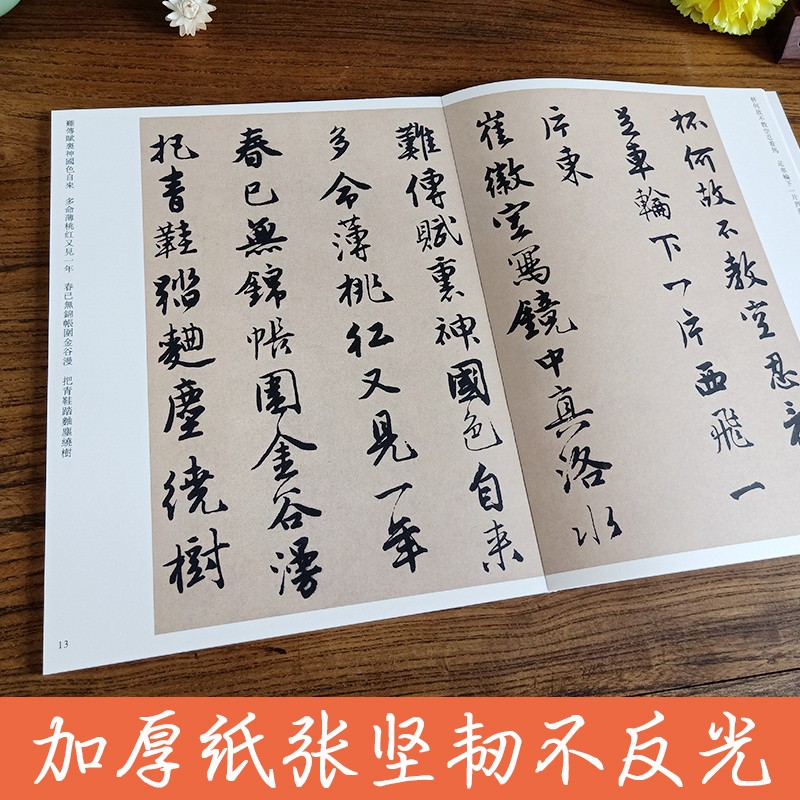 杯何故不教空忍看
足車輪下一片西飛一
片東
崔徽空寫鏡中真洛水
難傳賦裏神國色自來
多命薄桃紅又見一年
春已無錦帳圍金谷漫
把青鞋踏麯塵繞樹
杯何故不教空忍看馬 足車輪下 一片西
難傳賦裏神國色自來 多命薄桃紅又見一年 春已無錦帳圍金谷漫 把青鞋踏麯塵繞樹
13
加厚纸张坚韧不反光